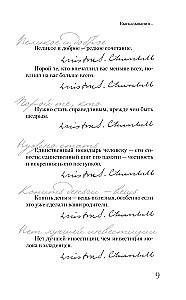 Высказывания о...
Великое и доброе
Великое и доброе — редкое сочетание.
Winston S. Churchill
Порой те, кто
Порой те, кто впечатлил нас меньше всех, повлиял на нас больше всего.
Winston S. Churchill
Нужно стать
Нужно стать справедливым, прежде чем быть
щедрым.
Winston S. Churchill
Единственный поводырь человека — его совесть;
единственный щит его памяти — честность и
искренность его поступков.
Winston S. Churchill
Копить деньги — вещь
Копить деньги — вещь полезная, особенно если
это уже сделали ваши родители.
Winston S. Churchill
Нет лучшей инвестиции
Нет лучшей инвестиции, чем инвестиция молока
в младенцев.
Winston S. Churchill
9